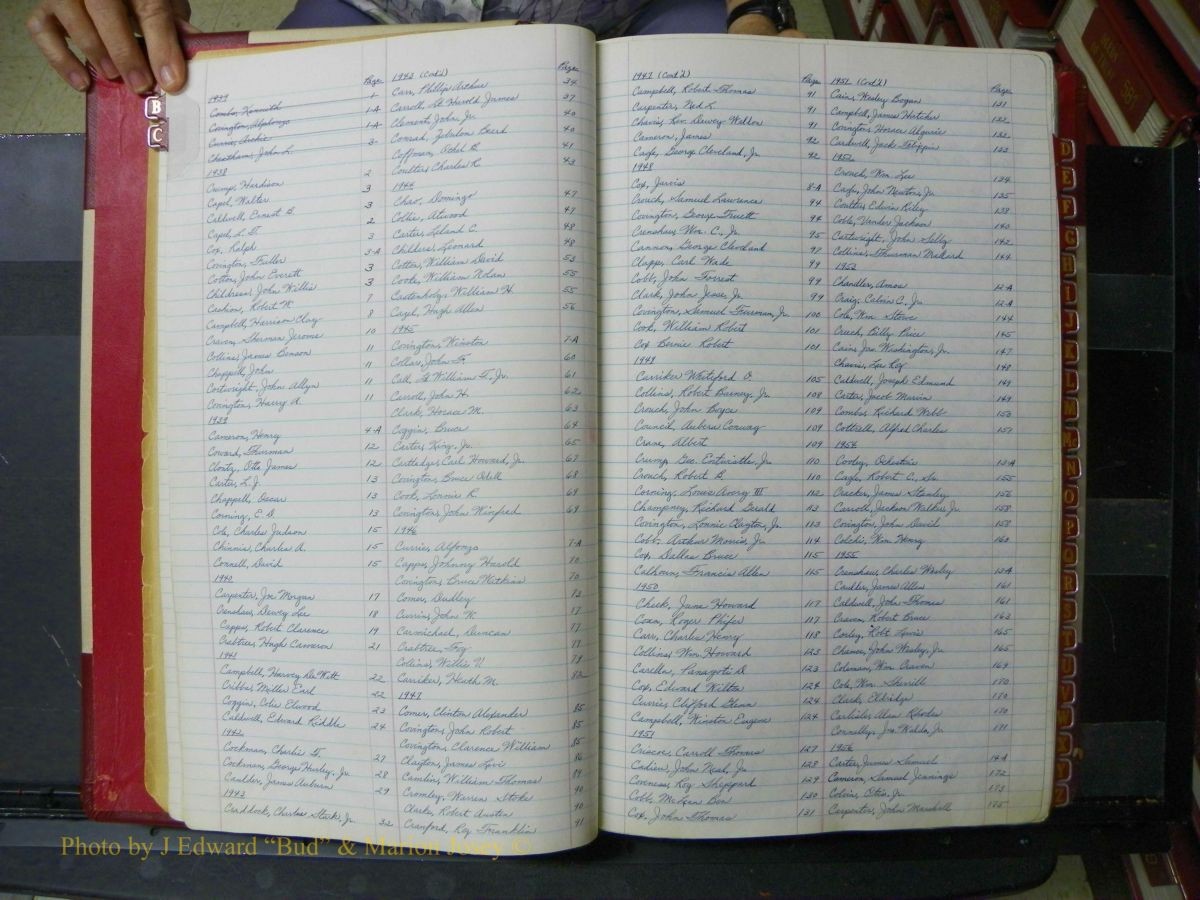 B
C
1937
Page
Combs, Kenneth 1
Covington, Alphonzo 1-A
Currie, Archie 1-A
Cheatham, John L.
1938
Crump, Hardison 2
Capel, Walter 3
Caldwell, Ernest B. 3
Capel, L. T. 2
Cox, Ralph 3
Covington, Fuller 3-A
Cotton, John Everett 3
Childress, John Willis 3
Cashion, Robert W. 7
Campbell, Harrison Clay 8
Craven, Sherman Jerome 10
Collins, James Benson 11
Chappell, John 11
Cartwright, John Allyn 11
Covington, Harry A. 11
1939
Cameron, Henry 4-A
Coward, Thurman 12
Clontz, Otto James 12
Carter, L. J. 13
Chappell, Oscar 13
Corning, E. D. 13
Cole, Charles Judson 15
Chinnis, Charles A. 15
Connell, David 15
1940
Carpenter, Joe Morgan 17
Crenshaw, Dewey Lee 18
Capps, Robert Clarence 19
Crabtree, Hugh Cameron 21
1941
Campbell, Harvey DeWitt 22
Cribbs, Miller Earl 22
Coggin, Colie Elwood 23
Caldwell, Edward Riddle 24
1942
Cockman, Charlie T. 27
Cockman, George Hurley, Jr. 28
Caulder, James Auburn 29
1943
Craddock, Charles Stark, Jr. 32
1943 (Cont'd)
Page
Carr, Phillip Arthur 34
Carroll, Lt. Harold James 37
Clement, John, Jr. 40
Conrad, Zebulon Beard 40
Coffman, Ochel B. 41
Coulter, Charles R. 43
1944
Chao, Domingo 47
Collie, Atwood 47
Carter, Leland C. 48
Childers, Leonard 48
Cotton, William David 53
Cooke, William Nolan 55
Castenholz, William H. 55
Cagel, Hugh Allen 56
1945
Covington, Winston 7-A
Collars, John F. 60
Call, Lt. William F., Jr. 61
Carroll, John H. 62
Clark, Horace M. 63
Coggins, Bruce 64
Carter, King, Jr. 65
Cartledge, Carl Howard, Jr. 67
Covington, Bruce Odell 68
Cook, Lonnie R. 69
Covington, John Winfred 69
1946
Currie, Alfonzo 7-A
Capps, Johnny Harold 70
Covington, Bruce Watkins 70
Comer, Dudley 73
Currin, John W. 77
Carmichael, Duncan 77
Crabtree, Foy 77
Collins, Willis V. 79
Carriker, Heath M. 82
1947
Comer, Clinton Alexander 85
Covington, John Robert 85
Covington, Clarence William 85
Clayton, James Levi 86
Camlin, William Thomas 89
Cromley, Warren Stoke 90
Clark, Robert Austin 90
Cranford, Roy Franklin 91
1947 (Cont'd)
Page
Campbell, Robert Thomas 91
Carpenter, Ned L. 91
Chavis, Rev. Dewey Weldon 91
Cameron, James 92
Cagle, George Cleveland, Jr. 92
1948
Cox, Jarvis 8-A
Crouch, Samuel Lawrence 94
Covington, George Truett 94
Crenshaw, Wm. C., Jr. 95
Cannon, George Cleveland 97
Clapp, Carl Wade 99
Cobb, John Forrest 99
Clark, John Jesse, Jr. 99
Covington, Samuel Furman, Jr. 100
Cook, William Robert 101
Cox, Bernie Robert 101
1949
Carriker, Whiteford O. 105
Collins, Robert Barney, Jr. 108
Crouch, John Boyce 109
Council, Aubern Conway 109
Crane, Albert 109
Crump, Geo. Entwistle, Jr. 110
Crouch, Robert B. 110
Corning, Louis Avery III 112
Champney, Richard Gerald 113
Covington, Lonnie Clayton, Jr. 113
Cobb, Arthur Morris, Jr. 114
Cox, Dallas Bruce 115
Calhoun, Francis Allen 115
1950
Cheek, June Howard 117
Coan, Roger Phifer 117
Carr, Charles Henry 118
Collins, Wm. Howard 123
Carellas, Panagoti D. 123
Cox, Edward Wilton 124
Currie, Clifford Glenn 124
Campbell, Winston Eugene 124
1951
Criscoe, Carroll Thomas 127
Cadieu, John Neal, Jr. 128
Coveness, Roy Sheppard 129
Cobb, McLean Ben 130
Cox, John Thomas 131
1951 (Cont'd)
Page
Cain, Wesley Bogan 131
Campbell, James Hatcher 132
Covington, Horace Alguire 132
Cardwell, Jack Filippin 133
1952
Crouch, Wm. Lee 134
Cagle, John Newton, Jr. 135
Coulter, Edwin Riley 138
Coble, Vander Jackson 140
Cartwright, John Selby 142
Collins, Thurman Mickard 144
1953
Chandler, Amos 12-A
Craig, Calvin C., Jr. 12-A
Cole, Wm. Stowe 144
Creech, Billy Price 145
Cain, Jno. Washington, Jr. 147
Chavis, Lee Roy 148
Caldwell, Joseph Edmund 149
Carter, Jacob Marvin 149
Combs, Richard Webb 150
Cottrell, Alfred Charles 151
1954
Cooley, Ochestine 13-A
Cagle, Robert C., Sr. 155
Cracker, James Stanley 156
Carroll, Jackson Walker, Jr. 158
Covington, John David 158
Coleski, Wm. Henry 160
1955
Crenshaw, Charles Wesley 13-A
Caulder, James Allen 161
Caldwell, John Thomas 161
Craven, Robert Bruce 163
Conley, Robt. Lewis 165
Chance, John Wesley, Jr. 165
Coleman, Wm. Craven 169
Cole, Wm. Sherrill 170
Clark, Eldridge 170
Carlisle, Alan Rhodes 170
Connelly, Jno. Walsh, Jr. 171
1956
Carter, James Samuel 14-A
Cameron, Samuel Jennings 172
Colvin, Otis, Jr. 173
Carpenter, John Marshall 175
D
E
F
G
H
I
J
K
L
M
Mc
N
O
P
Q
R
S
T
U
V
W
X
Y
Z
Photo by J Edward “Bud” & Marion Josey ©